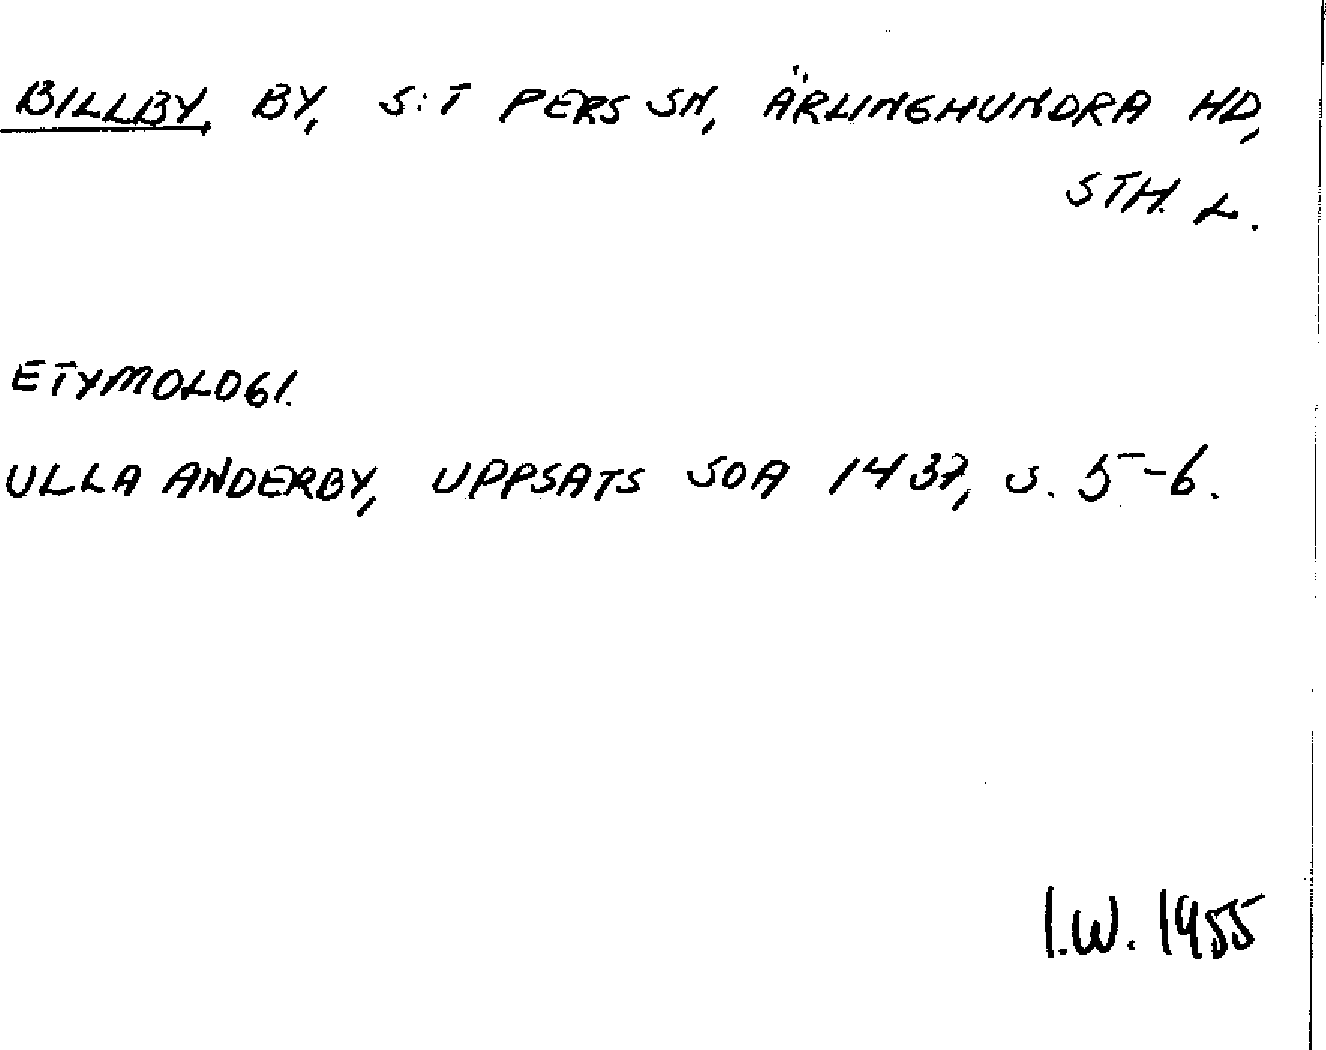 BILLBY, BY, S:T PERS SN, ÄRLINGHUNDRA HD,
STH. L.
ETYMOLOGI.
ULLA ANDERBY, UPPSATS SOA 1437, S. 5-6.
I.W. 1955